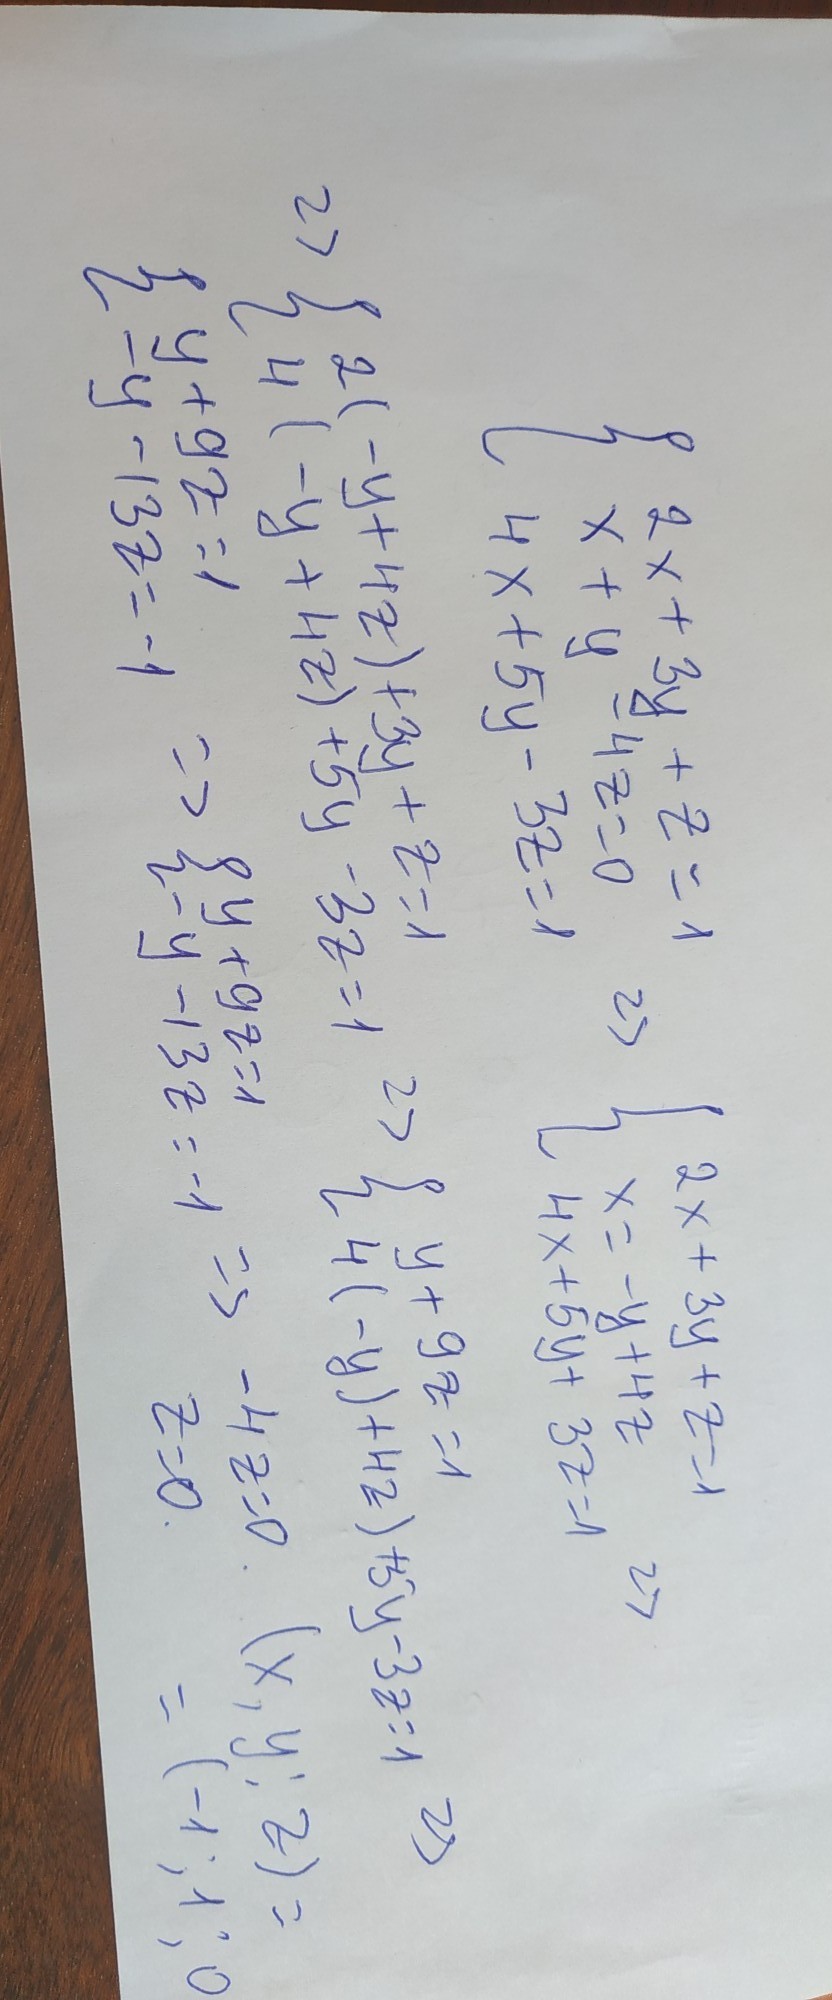 { 2x + 3y + z = 1
x + y - 4z = 0
4x + 5y - 3z = 1 => { 2x + 3y + z = 1
x = -y + 4z
4x + 5y + 3z = 1 =>
=> { 2(-y + 4z) + 3y + z = 1
4(-y + 4z) + 5y - 3z = 1 => { y + 9z = 1
4(-y) + 4z) + 5y - 3z = 1 =>
{ y + 9z = 1
-y - 13z = -1 => { y + 9z = 1
-y - 13z = -1 => -4z = 0.
z = 0. (x, y; z) =
= (-1; 1; 0